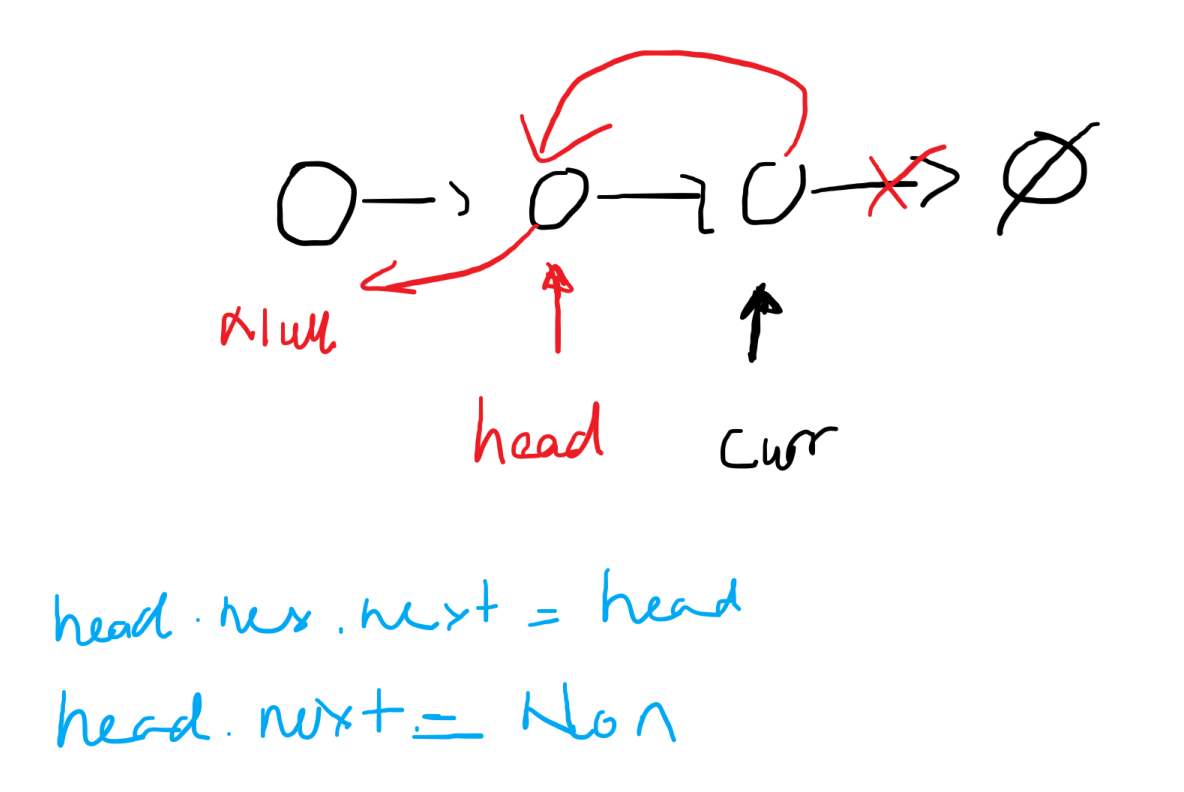 Null
head curr
head.nex.next = head
head.next = Non